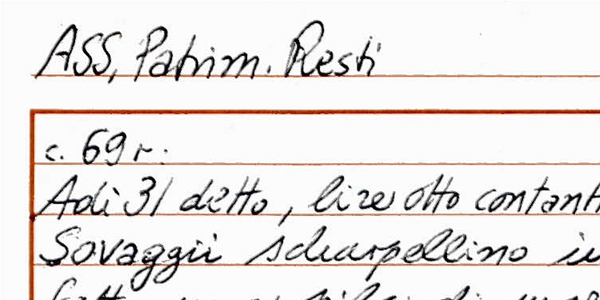 ASS, Patrim. Resti
c. 69 r:
Adì 31 detto, lire otto contant
Sovaggii scharpellino i